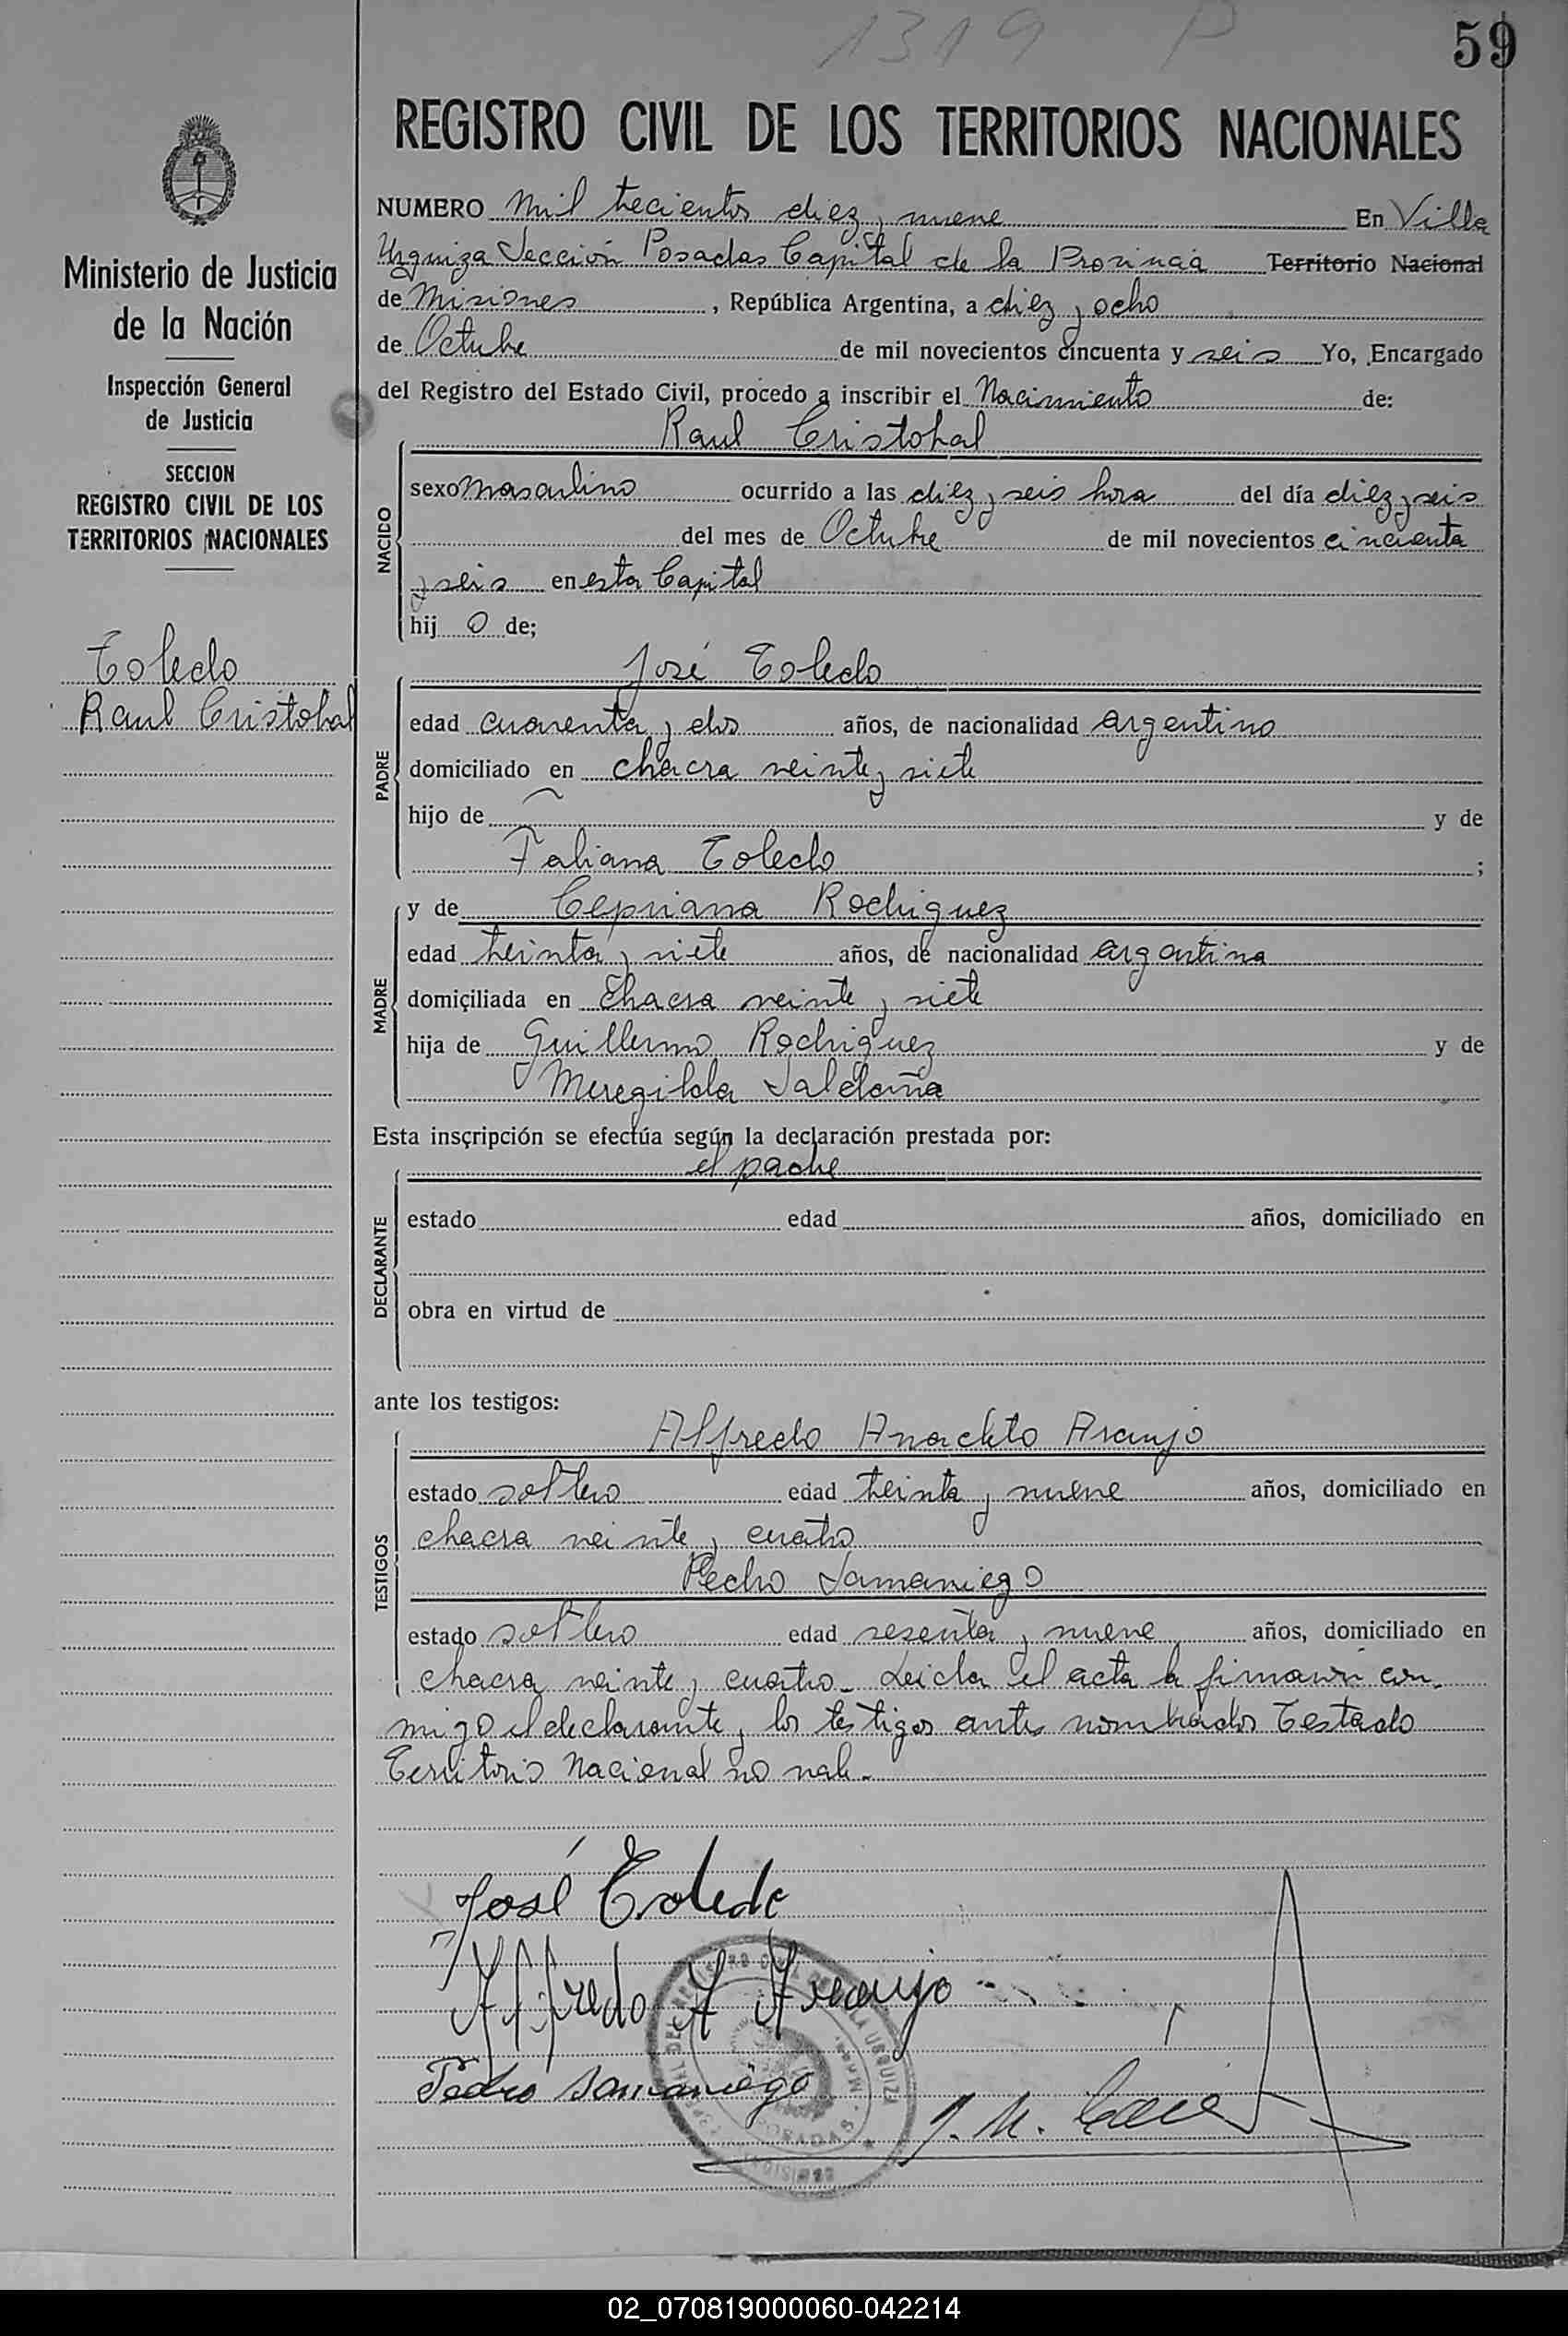 1319 P
59
REGISTRO CIVIL DE LOS TERRITORIOS NACIONALES
Ministerio de Justicia
de la Nación
Inspección General
de Justicia
SECCION
REGISTRO CIVIL DE LOS
TERRITORIOS NACIONALES
Toledo
Raul Cristobal
NUMERO Mil trecientos diez y nueve En Villa
Urquiza Sección Posadas Capital de la Provincia Territorio Nacional
de Misiones, República Argentina, a diez y ocho
de Octubre de mil novecientos cincuenta y seis Yo, Encargado
del Registro del Estado Civil, procedo a inscribir el Nacimiento de:
NACIDO
Raul Cristobal
sexo masculino ocurrido a las diez y seis hora del día diez y seis
del mes de Octubre de mil novecientos cincuenta
y seis en esta Capital
hij o de;
PADRE
José Toledo
edad cuarenta y dos años, de nacionalidad argentino
domiciliado en chacra veinte y siete
hijo de y de
Fabiana Toledo ;
MADRE
y de Cepriana Rodriguez
edad treinta y siete años, de nacionalidad argentina
domiciliada en Chacra veinte y siete
hija de Guillermo Rodriguez y de
Meregilda Saldaña
Esta inscripción se efectúa según la declaración prestada por:
DECLARANTE
el padre
estado edad años, domiciliado en
obra en virtud de
ante los testigos:
TESTIGOS
Alfredo Anacleto Araujo
estado soltero edad treinta y nueve años, domiciliado en
chacra veinte y cuatro
Pedro Samaniego
estado soltero edad sesenta y nueve años, domiciliado en
chacra veinte y cuatro. Leida el acta la firmaron con
migo el declarante y los testigos antes nombrados Testado
Territorio Nacional no vale.
José Toledo
Alfredo A Araujo
Pedro Samaniego
02_070819000060-042214